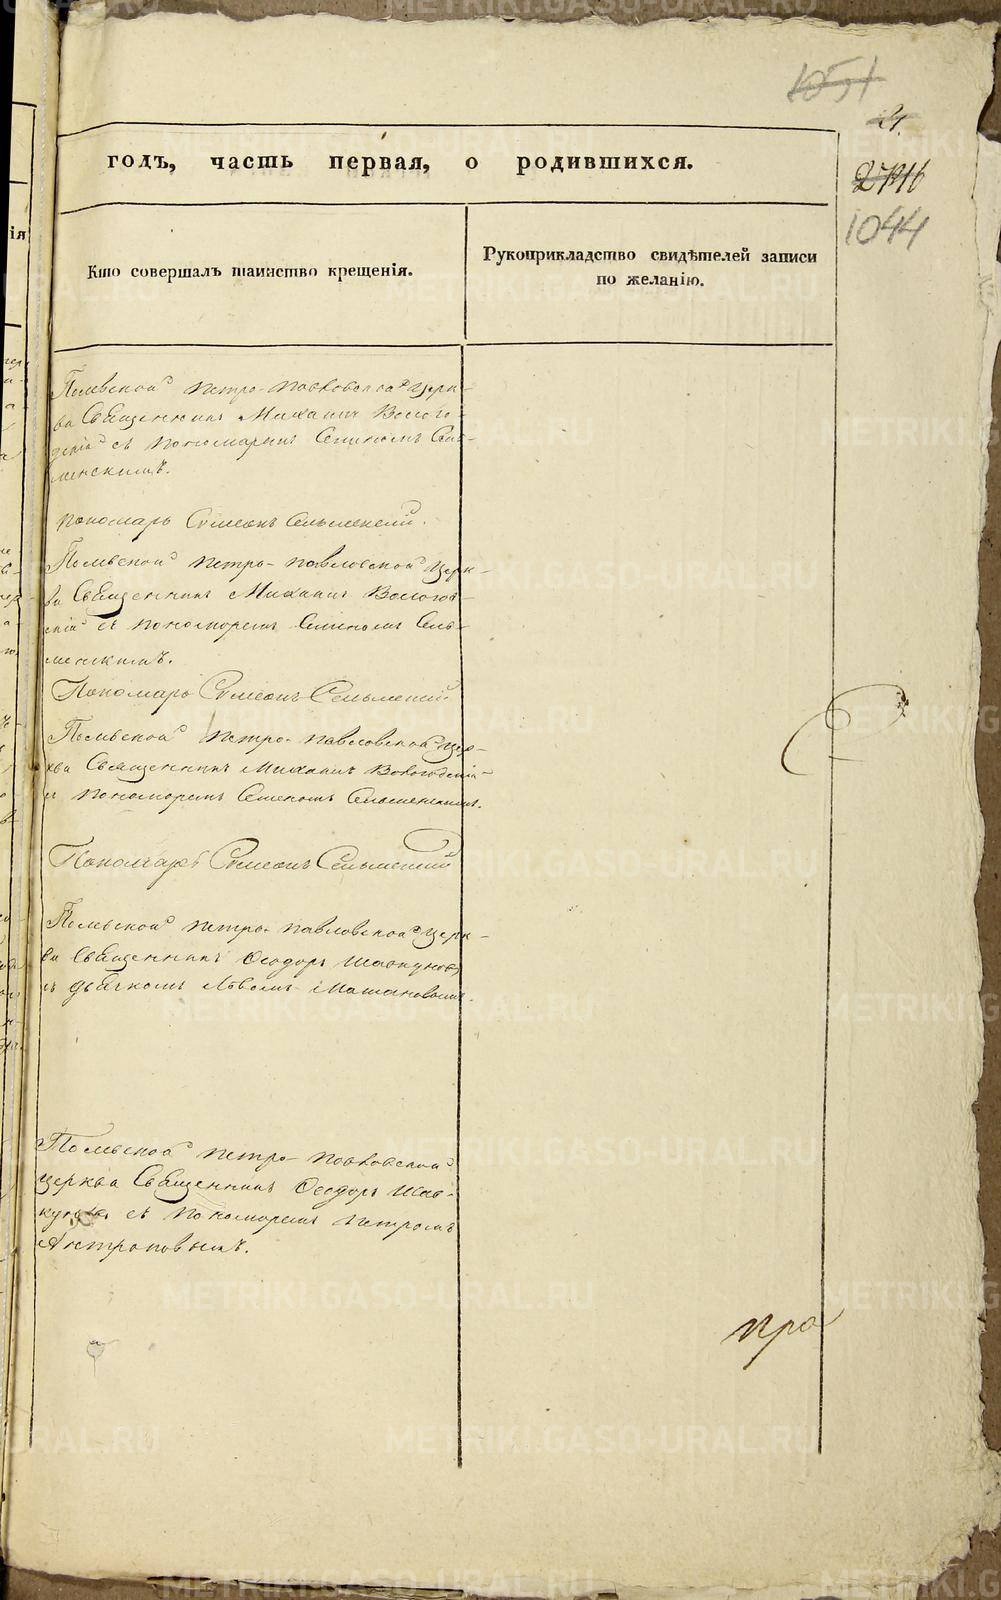 1051
21.
2716
1044
годъ, часть первая, о родившихся.
Кто совершалъ таинство крещенія.
Рукоприкладство свидѣтелей записи
по желанію.
Полевской Петро-Павловской Церк-
ви Священникъ Михаилъ Волого-
дскій съ пономаремъ Семеномъ Сель-
менскимъ.
Пономарь Симеонъ Сельменский.
Полевской Петро-Павловской Церк-
ви Священникъ Михаилъ Вологод-
скій съ пономаремъ Семеномъ Сель-
менскимъ.
Пономарь Симеонъ Сельменский
Полевской Петро-Павловской Цер-
кви Священникъ Михаилъ Вологодскій
съ пономаремъ Семеномъ Сельменскимъ.
Пономарь Симеонъ Сельменский
Полевской Петро-Павловской Церк-
ви Священникъ Ѳеодоръ Шавкуновъ
съ дьячкомъ Львомъ
Полевской Петро-Павловской
церкви Священникъ Ѳеодоръ Шав-
куновъ съ пономаремъ Петромъ
Антроповымъ.
пра
METRIKI.GASO-URAL.RU